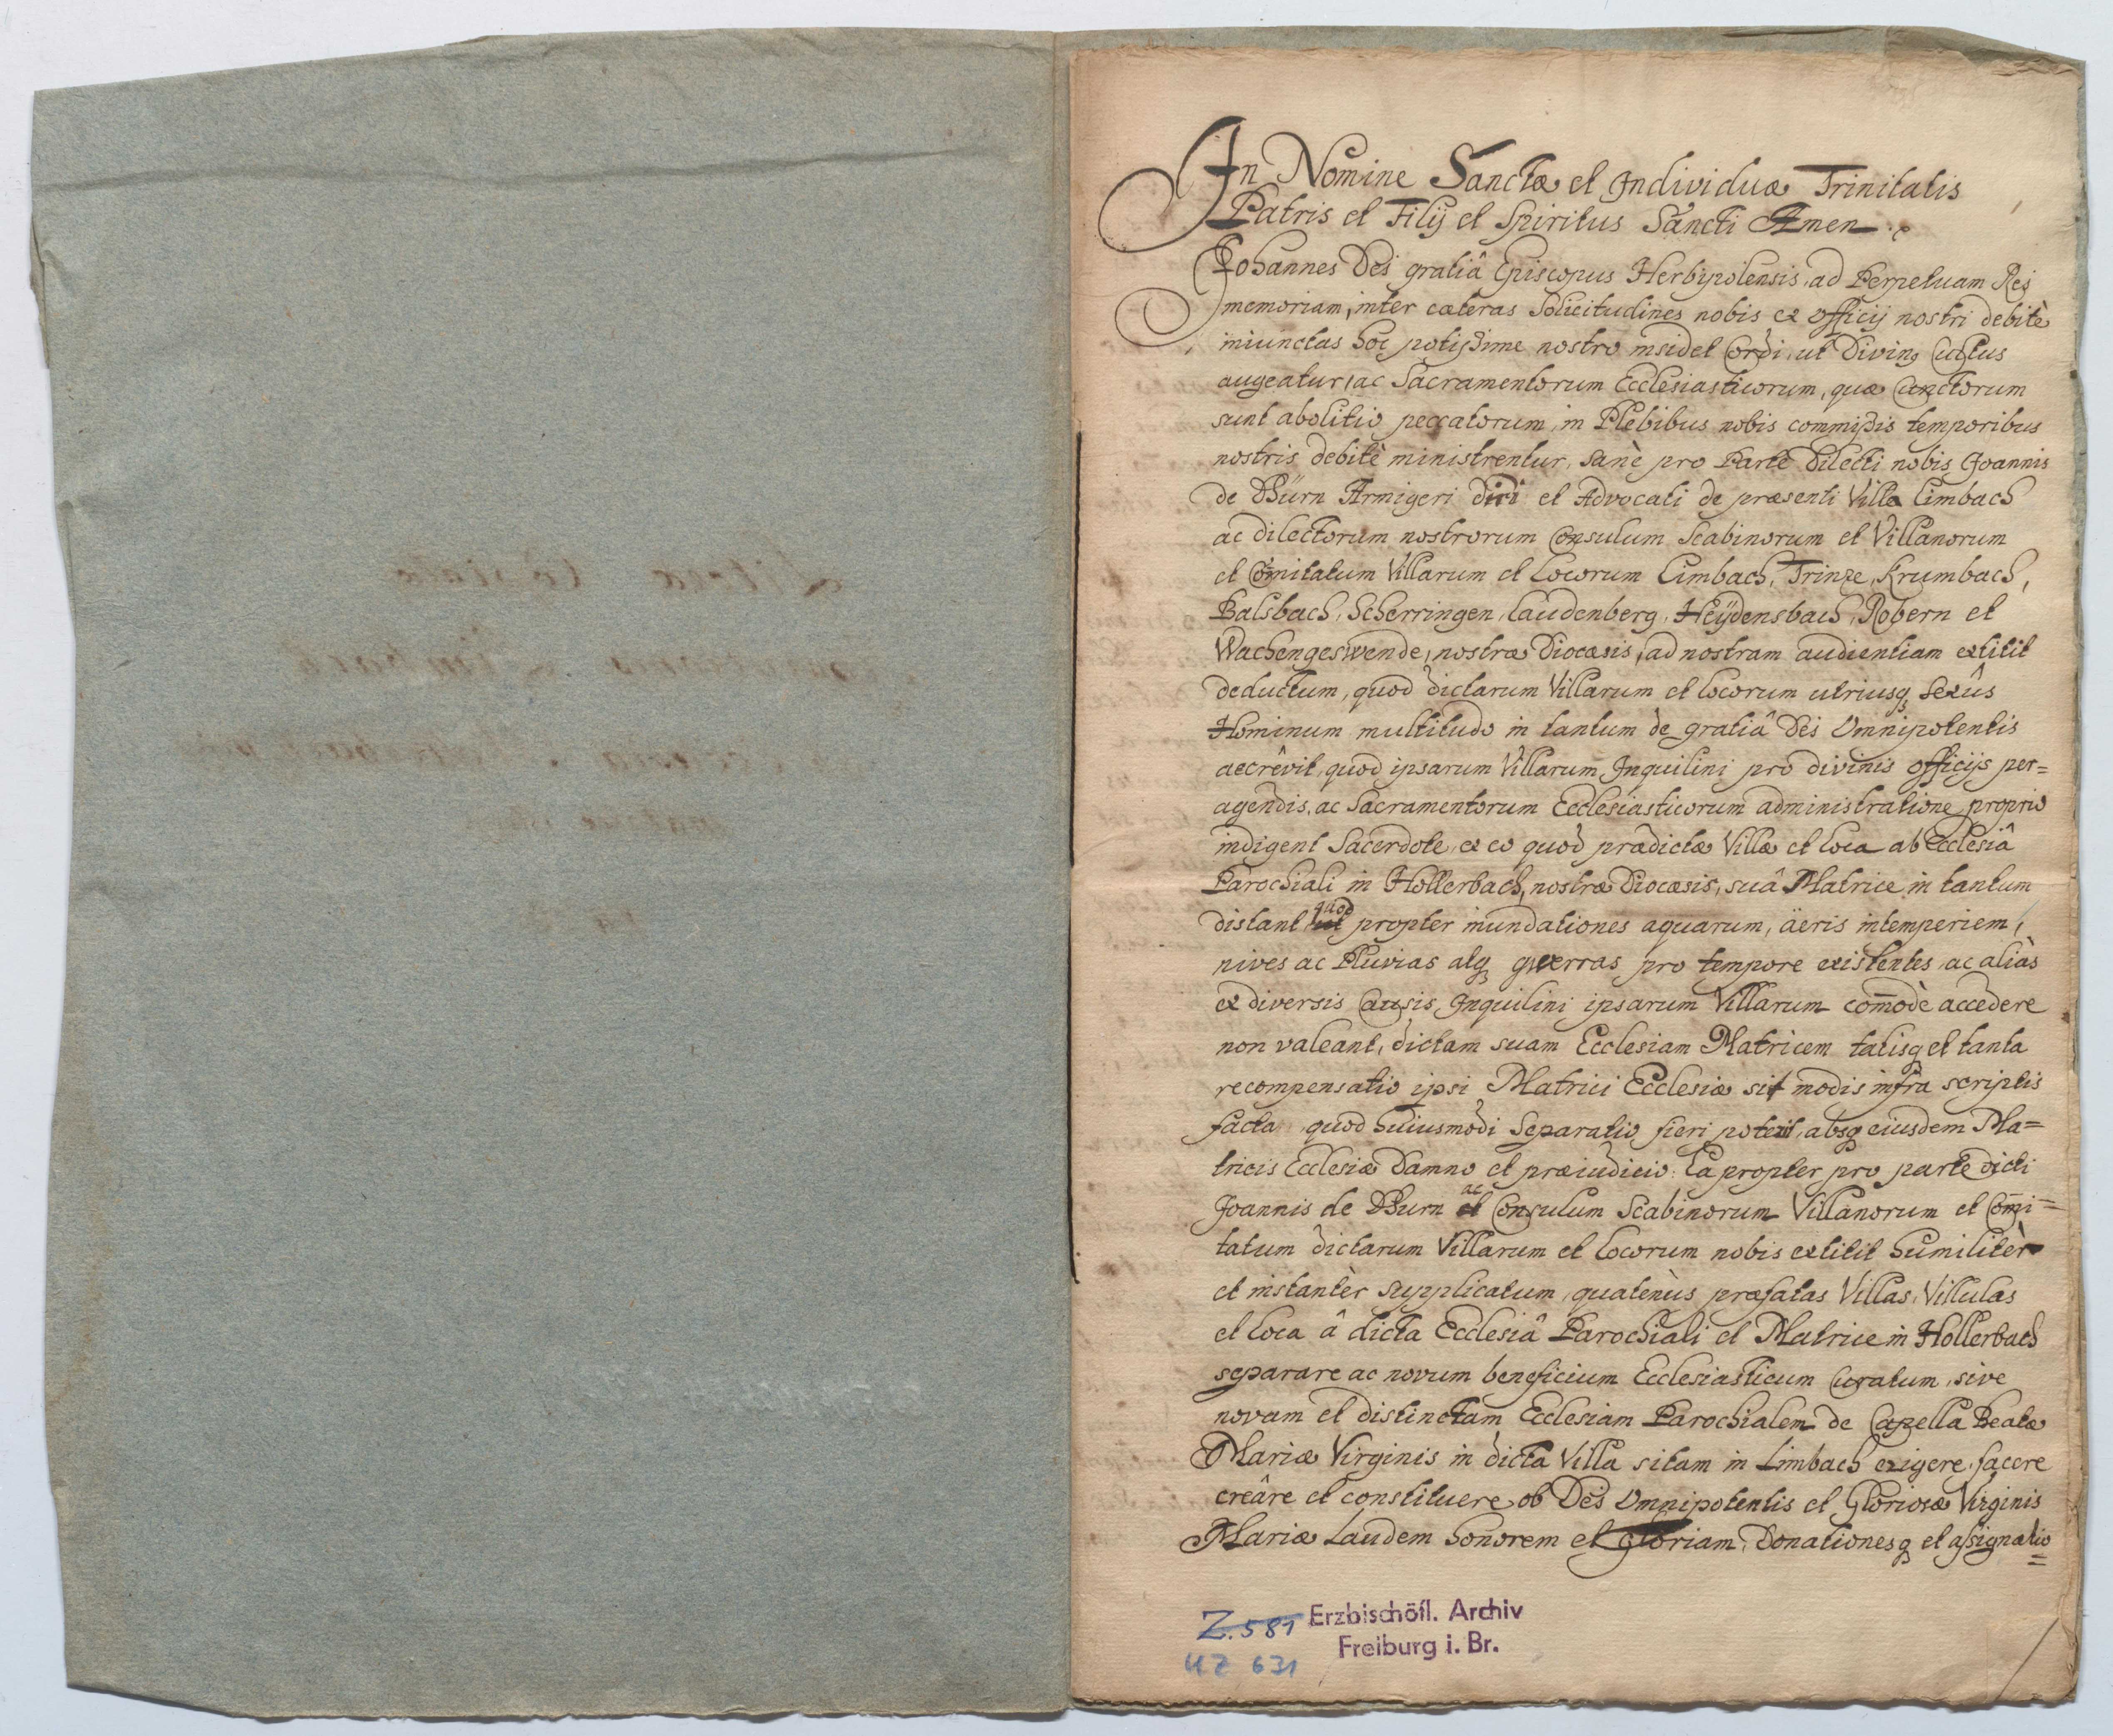 In Nomine Sanctæ et Individuæ Trinitatis
Patris et Filij et Spiritus Sancti Amen
Johannes Dei gratiâ Episcopus Herbipolensis, ad Perpetuam Rei
memoriam, inter cæteras Solicitudines nobis ex officij nostri debitè
iniunctas hoc potissime nostro insidet Cordi, ut Divin9 Cultus
augeatur, ac Sacramentorum Ecclesiasticorum, quæ Cunctorum
sunt abolitio peccatorum, in Plebibus nobis commissis temporibus
nostris debitè ministrentur, Sanè pro Parte Dilecti nobis Joannis
de Dhürn Armigeri Dicti et Advocati de præsenti Villa Limbach
ac dilectorum nostrorum Consulum Scabinorum et Villanorum
et Com̃itatum Villarum et Locorum Limbach, Trinze, Krumbach,
Balsbach, Scherringen, Laudenberg, Heÿdensbach, Robern et
Wachengeswende, nostræ Diocæsis, ad nostram audientiam extitit
deductum, quod dictarum Villarum et locorum utriusq Sexûs
Hominum multitudo in tantum de gratiâ Dei Omnipotentis
accrêvit, quod ipsarum Villarum Inquilini pro divinis officijs per=
agendis, ac Sacramentorum Ecclesiasticorum administratione proprio
indigent Sacerdote, ex eo quod prædictæ Villæ et loca ab Ecclesiâ
Parochiali in Hollerbach, nostræ Diocæsis, suâ Matrice in tantum
distant quod propter inundationes aquarum, äeris intemperiem,
nives ac Pluvias atq gwerras pro tempore existentes, ac aliàs
ex diversis Causis, Inquilini ipsarum Villarum com̄odè accedere
non valeant, dictam suam Ecclesiam Matricem talisq et tanta
recompensatio ipsi Matrici Ecclesiæ sit modis infra scriptis
facta quod huiusmodi Separatio fieri poterit, absq eiusdem Ma=
tricis Ecclesiæ Damno et præiudicio: Ea propter pro parte dicti
Joannis de Dhurn ac Consulum Scabinorum Villanorum et Com̃i=
tatum dictarum Villarum et locorum nobis extitit humilitèr
et instantèr supplicatum, quatenùs præfatas Villas, Villulas
et loca â dicta Ecclesiâ Parochiali et Matrice in Hollerbach
separare ac novum beneficium Ecclesiasticum Curatum, sive
novam et distinctam Ecclesiam Parochialem de Capella Beatæ
Mariæ Virginis in dicta Villa sitam in Limbach erigere, facere
creâre et constituere ob Dei Omnipotentis et Gloriosæ Virginis
Mariæ Laudem honorem et gloriam, Donationesq et assignatio
=
Z. 581 Erzbischöfl. Archiv
UZ 631 Freiburg i. Br.